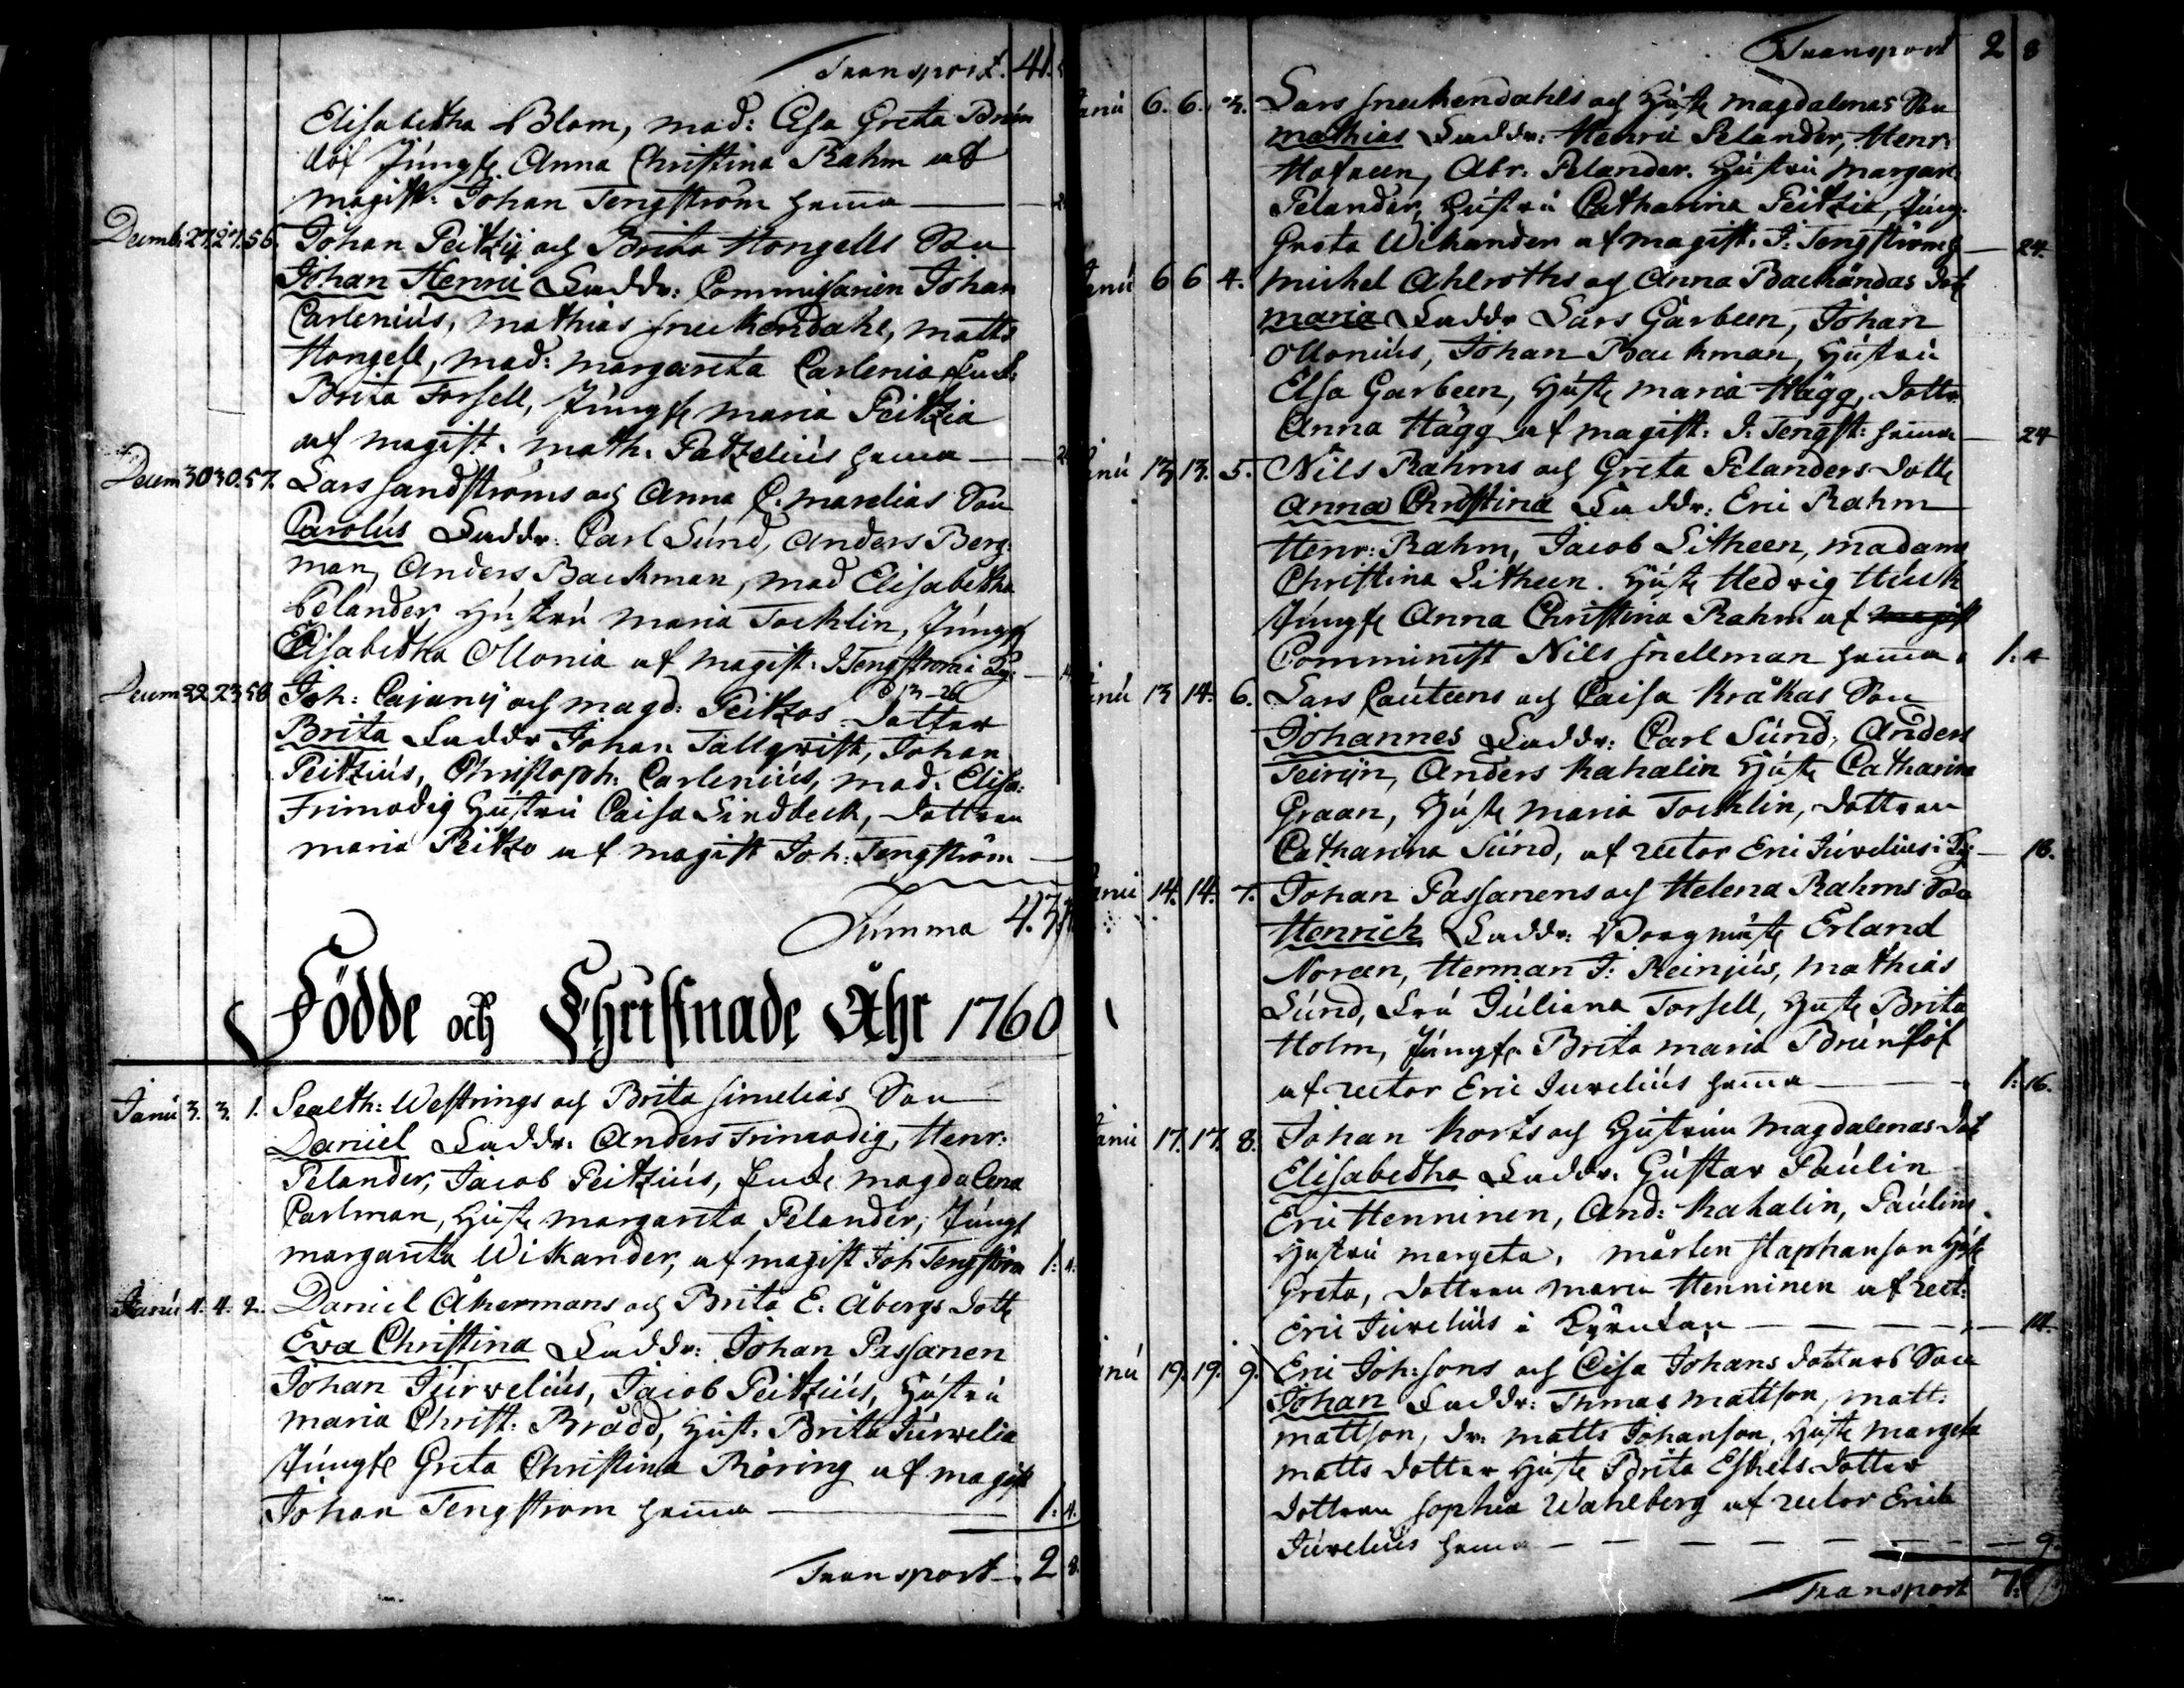 Transport. 41.
Elisabetha Blom, mad: Elsa Greta Brun
döf Jungfr. Anna Christina Rahm af
magist: Johan Tengström hema
Decemb. 27. 27. 56. Johan Peitzij och Brita Hongells Son
Johan Henric Faddr: Commissarien Johan
Carlenius, Mathias Sneckendahl, Matts
Hongell, mad: Margareta Carlenia
Brita Forsell, Jungfr Maria Peitzia
af magist. Math. Patzelius hema
Decem 30 30. 57. Lars Sandströms och Anna C. Marelias Son
Carolus Faddr: Carl Sund, Anders Berg:
man, Anders Backman, mad Elisabetha
Pelander Hustru Maria Tocklin, Jungf
Elisabetha Ollonia af magist. J. Tengström i Ky:
Decem 22 23 58 Joh: Cajany och Magd: Peitzos dotter
Brita Faddr Johan Tallqvist, Johan
Peitzius, Christoph: Carlenius, mad. Elisa:
Frimodig Hustru Caisa Lindbeck, dottren
Maria Peitzo af magist Joh: Tengström
Summa 43
Födde och Christnade Åhr 1760
Janu 3. 3. 1. Sealth: Westrings och Brita Simelias Son
Daniel Faddr: Anders Frimodig, Henr:
Pelander, Jacob Peitzius, Magdalena
Carlman, Hustr Margareta Pelander, Jungf
Margareta Wikander, af magist Joh Tengström 1: 4.
Janu 4. 4. 2. Daniel Åkermans och Brita E. Åbergs dottr
Eva Christina Faddr: Johan Passanen
Johan Jurvelius, Jacob Peitzius, Hustru
Maria Christ: Brådd, Hust. Brita Jurvelia
Jungfr Greta Christina Röring af magist
Johan Tengström hema 1: 4.
Transport 2 8.
Transport 2 8
Janu 6. 6. 3. Lars Sneckendahls och Hustr Magdalenas Son
Mathias Faddr: Henric Pelander, Henr:
Hofreen, Abr: Pelander. Hustru Margare
Pelander, Hustru Catharina Peitzia, Jung:
Greta Wikander af magist. J: Tengström h 24.
Janu 6 6 4. Michel Ahlroths och Anna Backändas dot
Maria Faddr Lars Garbeen, Johan
Ollonius, Johan Backman, Hustru
Elsa Garbeen, Hustr Maria Hägg, dottr
Anna Hägg af magist: J: Tengst: hema 24
Janu 13 13. 5. Nils Rahms och Greta Pelanders dottr
Anna Christina Faddr: Eric Rahm
Henr: Rahm, Jacob Litheen, Madame
Christina Litheen. Hustr Hedvig Huck
Jungfr Anna Christina Rahm af magist
Comminist Nils Snellman hema 1: 4
Janu 13 14. 6. Lars Cauteens och Caisa Kråkas Son
Johannes Faddr: Carl Sund, Anders
Teirijn, Anders Kahalin Hustr Catharina
Graan, Hustr Maria Tocklin, dottren
Catharina Sund, af rector Eric Jurelius i Ky 18.
Janu 14. 14. 7. Johan Passanens och Helena Rahms Son
Henrich Faddr: Borgmäst Erland
Noreen, Herman J: Reinjus, Mathias
Sund, Fru Juliana Forsell, Hustr Brita
Holm, Jungfr. Brita Maria Brunlöf
af rector Eric Jurelius hema 1: 16.
Janu 17. 17. 8. Johan Korts och Hustrun Magdalenas dot
Elisabetha Faddr. Gustav Paulin
Eric Henninen, And: Kahalin, Paulins
Hustru Margeta, Mårten Staphanson Hustr
Greta, dottren Maria Henninen af rect:
Eric Jurelius i Kyrckan 14.
Janu 19. 19. 9. Eric Joh:sons och Cisa Johans dotters Son
Johan Faddr: Thomas Mattson, Matt:
Mattson, dr: Matts Johanson, Hustr Margeta
Matts dotter Hustr Brita Eskels dotter
dottren Sophia Wahlberg af rector Erich
Jurelius hema 9.
Transport 7.